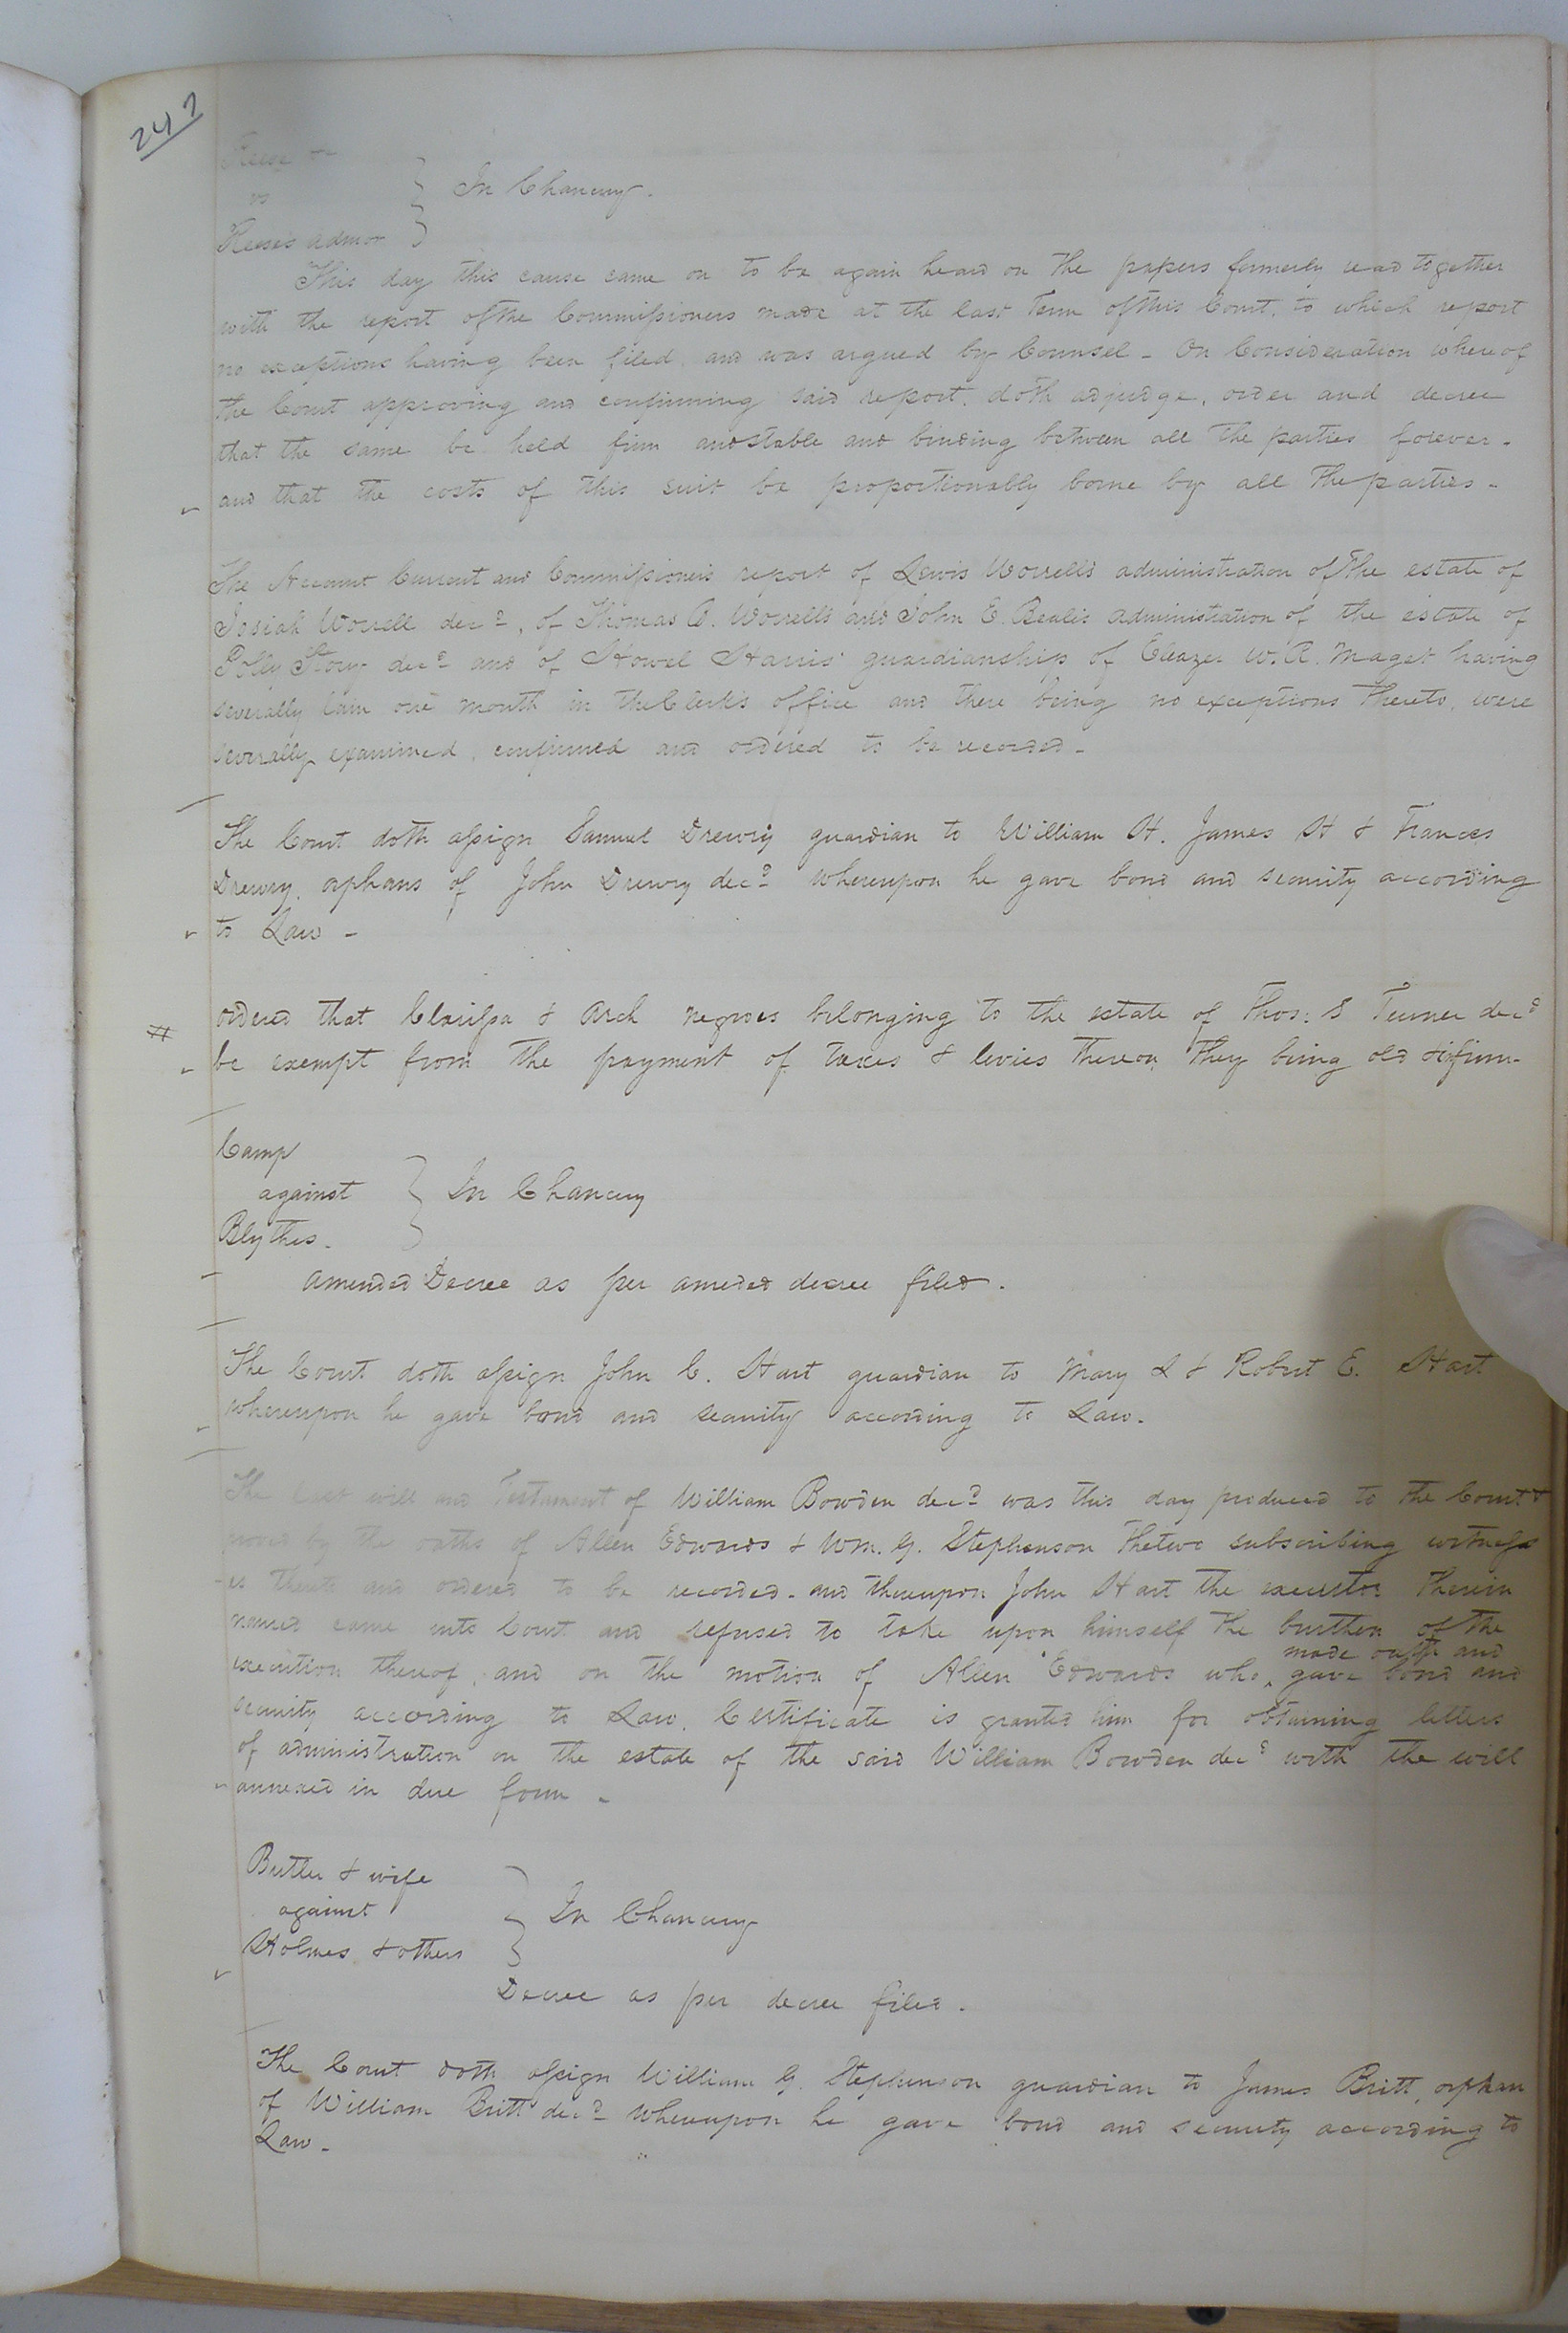 247
Reese
vs
Reese's admor } In Chancery.
This day this cause came on to be again heard on the papers formerly read together
with the report of the Commissioners made at the last Term of this Court, to which report
no exceptions having been filed, and was argued by Counsel - On Consideration whereof
the Court approving and confirming said report, doth adjudge, order and decree
that the same be held firm and stable and binding between all the parties forever.
and that the costs of this suit be proportionably borne by all the parties -
The Account Current and Commissioner's report of Lewis Worrell's administration of the estate of
Josiah Worrell decd, of Thomas Worrell's and John E. Beale's administration of the estate of
Polly Story decd and of Howel Harris' guardianship of Eleazer W. A. Maget having
severally lain one month in the Clerk's office and there being no exceptions thereto, were
severally examined, confirmed and ordered to be recorded -
The Court doth assign Samuel Drewry guardian to William H. James H & Frances
Drewry, orphans of John Drewry decd whereupon he gave bond and security according
to Law -
# ordered that Clarissa & Arch negroes belonging to the estate of Thos: S Turner decd
be exempt from the payment of taxes & levies thereon they being old & infirm -
Camp
against } In Chancery
Blythes.
amended Decree as per ameded decree filed.
The Court doth assign John C. Hart guardian to Mary L & Robert E. Hart
whereupon he gave bond and security according to Law.
The last will and Testament of William Bowden decd was this day produced to the Court &
proved by the oaths of Allen Edwards & Wm. G. Stephenson the two subscribing witness
-es thereto and ordered to be recorded - and thereupon John Hart the executor therein
named came into Court and refused to take upon himself the burthen of the
made oath and
execution thereof, and on the motion of Allen Edwards who ^ gave bond and
security according to Law, Certificate is granted him for obtaining letters
of administration on the estate of the said William Bowden decd with the will
annexed in due form -
Butler & wife
against } In Chancery
Holmes & others
Decree as per decree filed.
The Court doth assign William G. Stephenson guardian to James Britt, orphan
of William Britt decd whereupon he gave bond and security according to
Law -